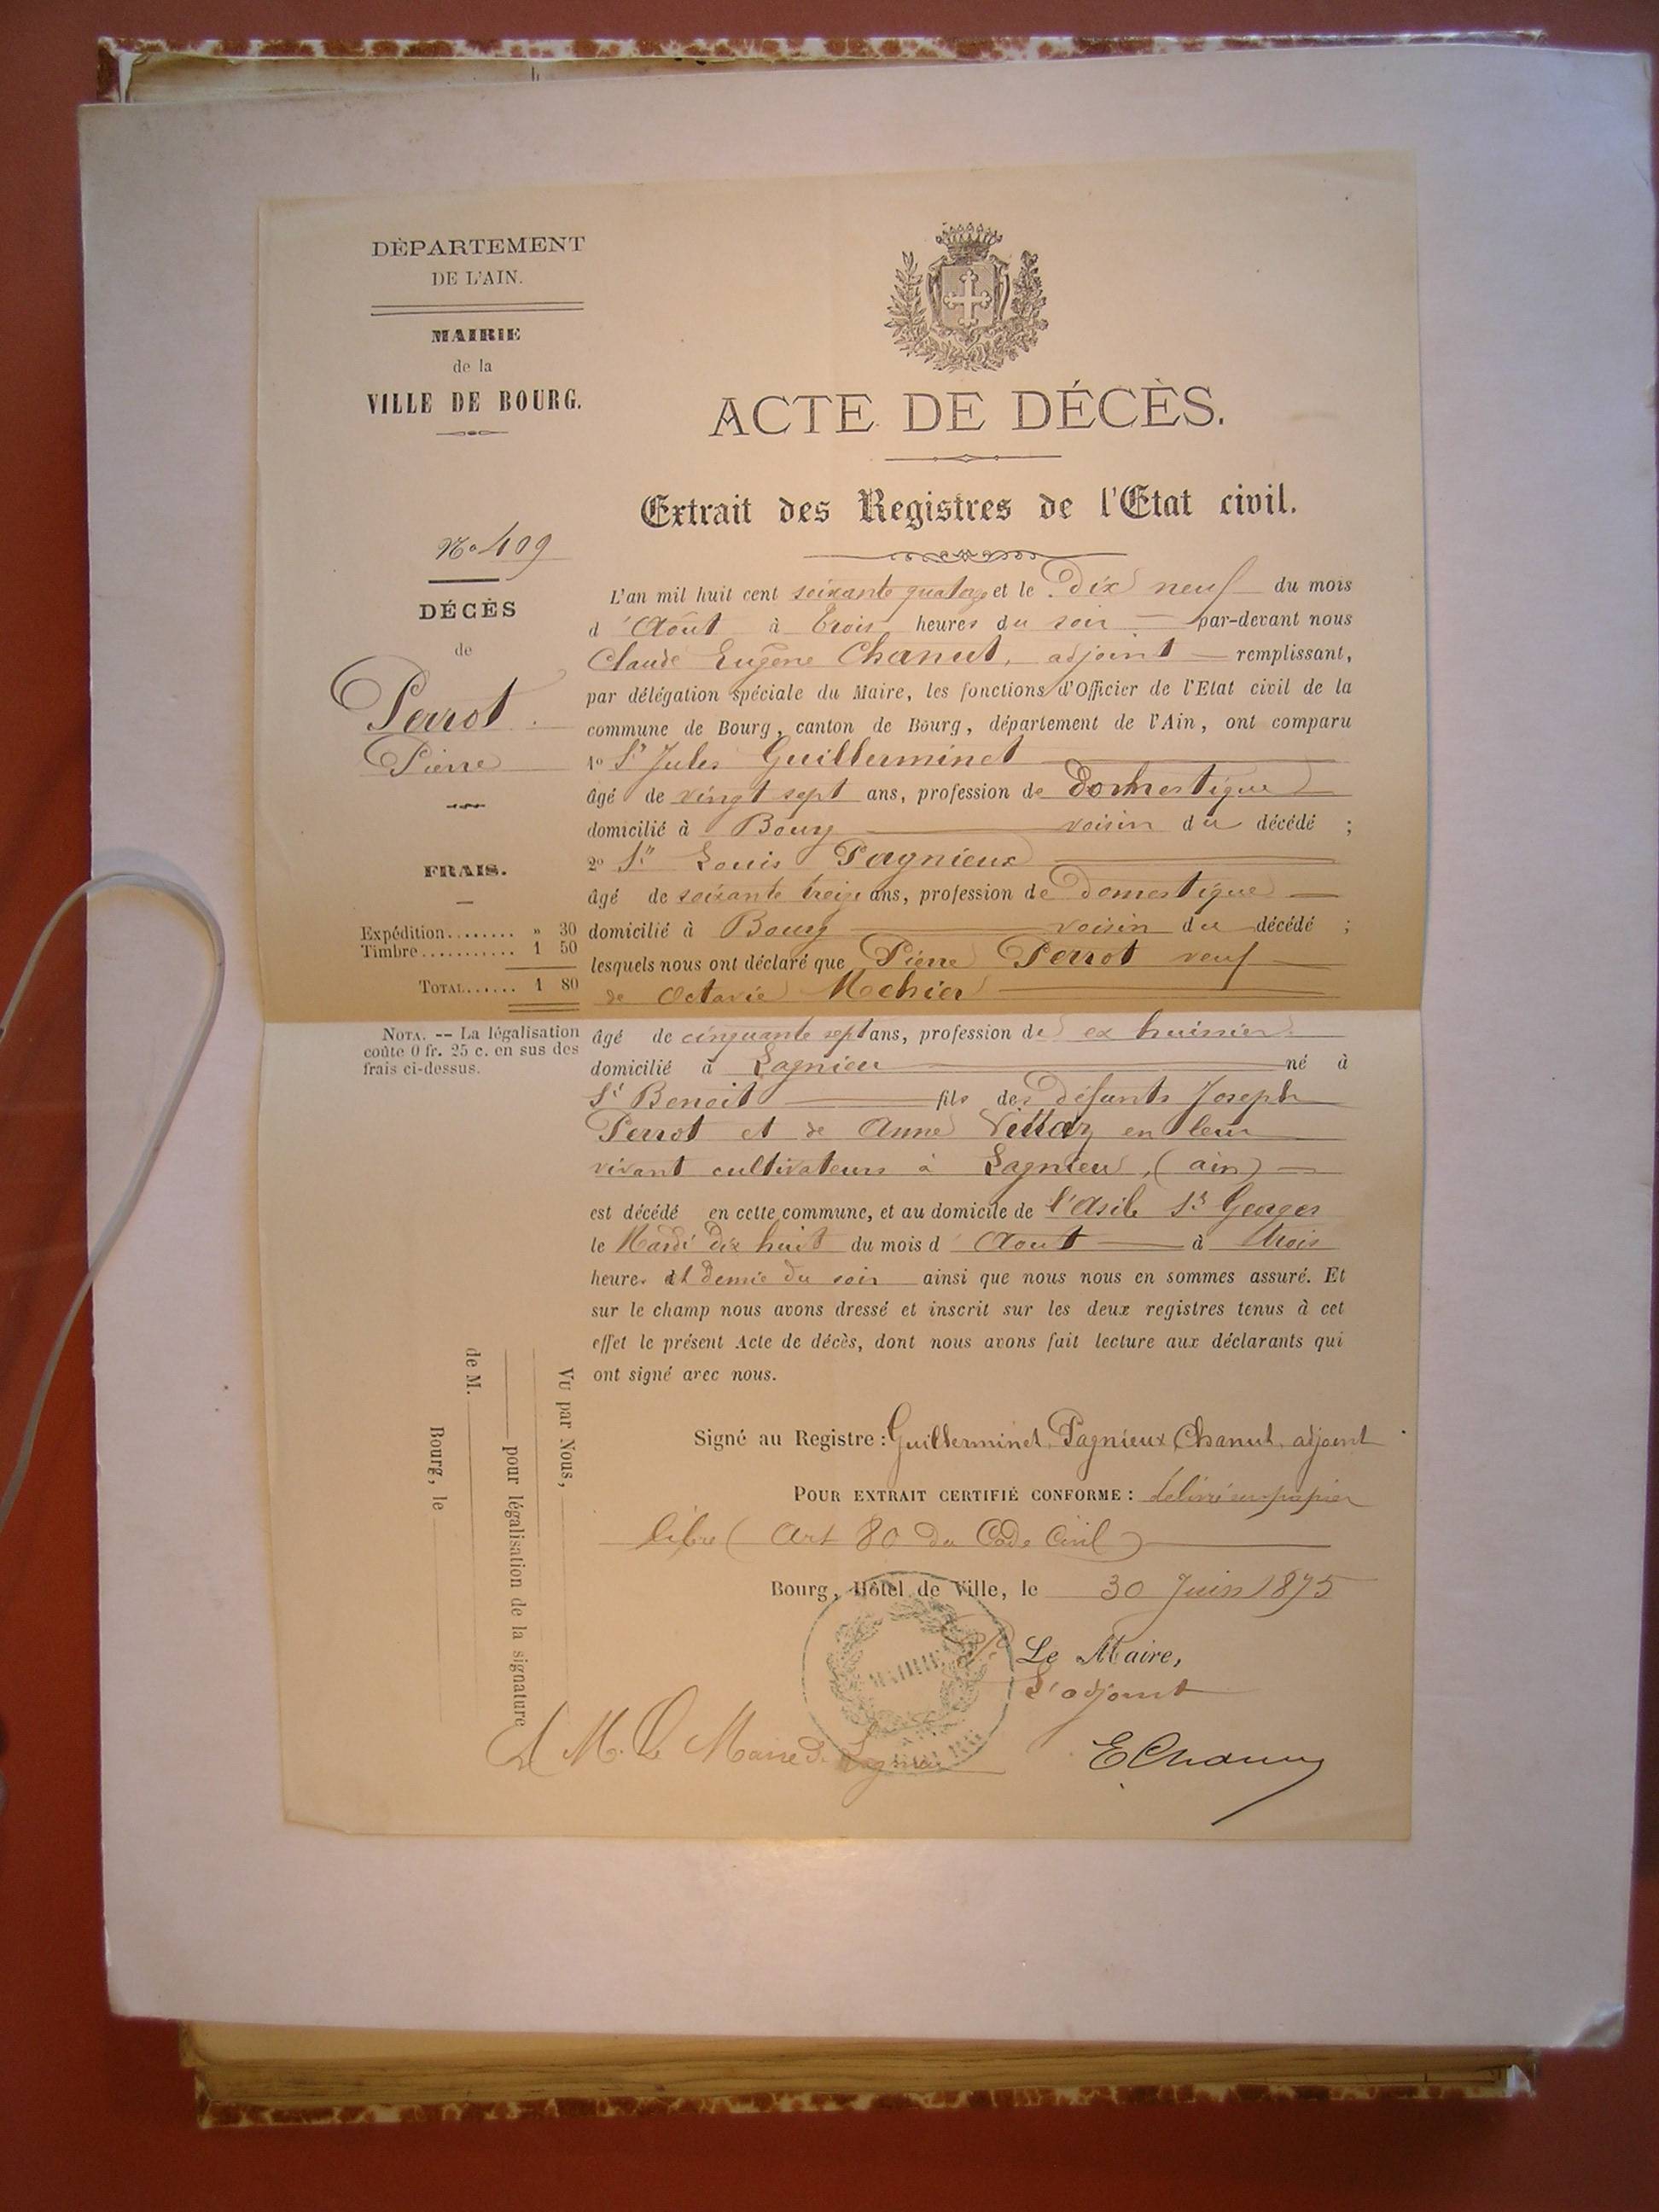 DÉPARTEMENT
DE L'AIN.
MAIRIE
de la
VILLE DE BOURG.
ACTE DE DÉCÈS.
Extrait des Registres de l'Etat civil.
No 409
DÉCÈS
de
Perrot
Pierre
FRAIS.
Expédition........ » 30
Timbre........... 1 50
TOTAL...... 1 80
NOTA. -- La légalisation
coûte 0 fr. 25 c. en sus des
frais ci-dessus.
L'an mil huit cent soixante quatorze et le Dix neuf du mois
d'Août à trois heures du soir par-devant nous
Claude Eugène Chanut, adjoint remplissant,
par délégation spéciale du Maire, les fonctions d'Officier de l'Etat civil de la
commune de Bourg, canton de Bourg, département de l'Ain, ont comparu
1o Sr Jules Guillerminet
âgé de vingt sept ans, profession de Domestique
domicilié à Bourg voisin du décédé ;
2o Sr Louis Pagnieux
âgé de soixante treize ans, profession de Domestique
domicilié à Bourg voisin du décédé ;
lesquels nous ont déclaré que Pierre Perrot veuf
de Octavie Mochier
âgé de cinquante sept ans, profession de ex huissier
domicilié à Lagnieu né à
St Benoit fils des défunts Joseph
Perrot et de Anne Vettaz en leur
vivant cultivateurs à Lagnieu, (ain)
est décédé en cette commune, et au domicile de l'Asile St Georges
le Mardi dix huit du mois d'Aout à trois
heures et demie du soir ainsi que nous nous en sommes assuré. Et
sur le champ nous avons dressé et inscrit sur les deux registres tenus à cet
effet le présent Acte de décès, dont nous avons fait lecture aux déclarants qui
ont signé avec nous.
Signé au Registre : Guillerminet, Pagnieux, Chanut, adjoint
POUR EXTRAIT CERTIFIÉ CONFORME : délivré sur papier
libre (Art 80 du Code Civil)
Bourg, Hôtel de Ville, le 30 Juin 1875
Pr Le Maire,
L'adjoint
E Chanut
A M. Le Maire de Lagnieu
MAIRIE
Vu par Nous,
pour légalisation de la signature
de M.
Bourg, le